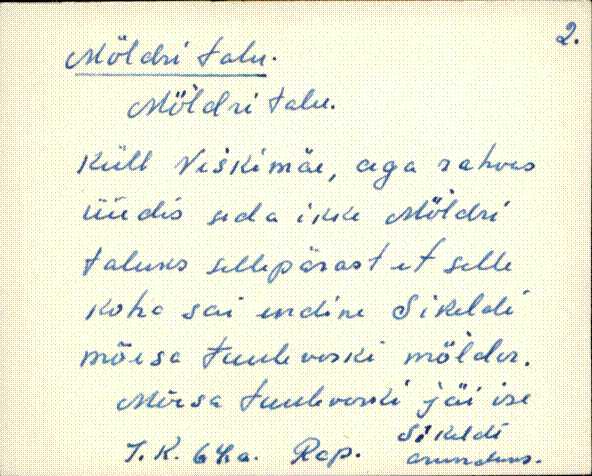 2.
Möldri talu.
Möldri talu.
Küll Viškimäe, aga rahvas
üüdis seda ikke Möldri
taluks sellepärast et selle
koha sai endine Sikeldi
mõisa tuuleveski mölder.
Mõisa tuuleveski jäi ise
J. K. 64a. Rap. Sikeldi